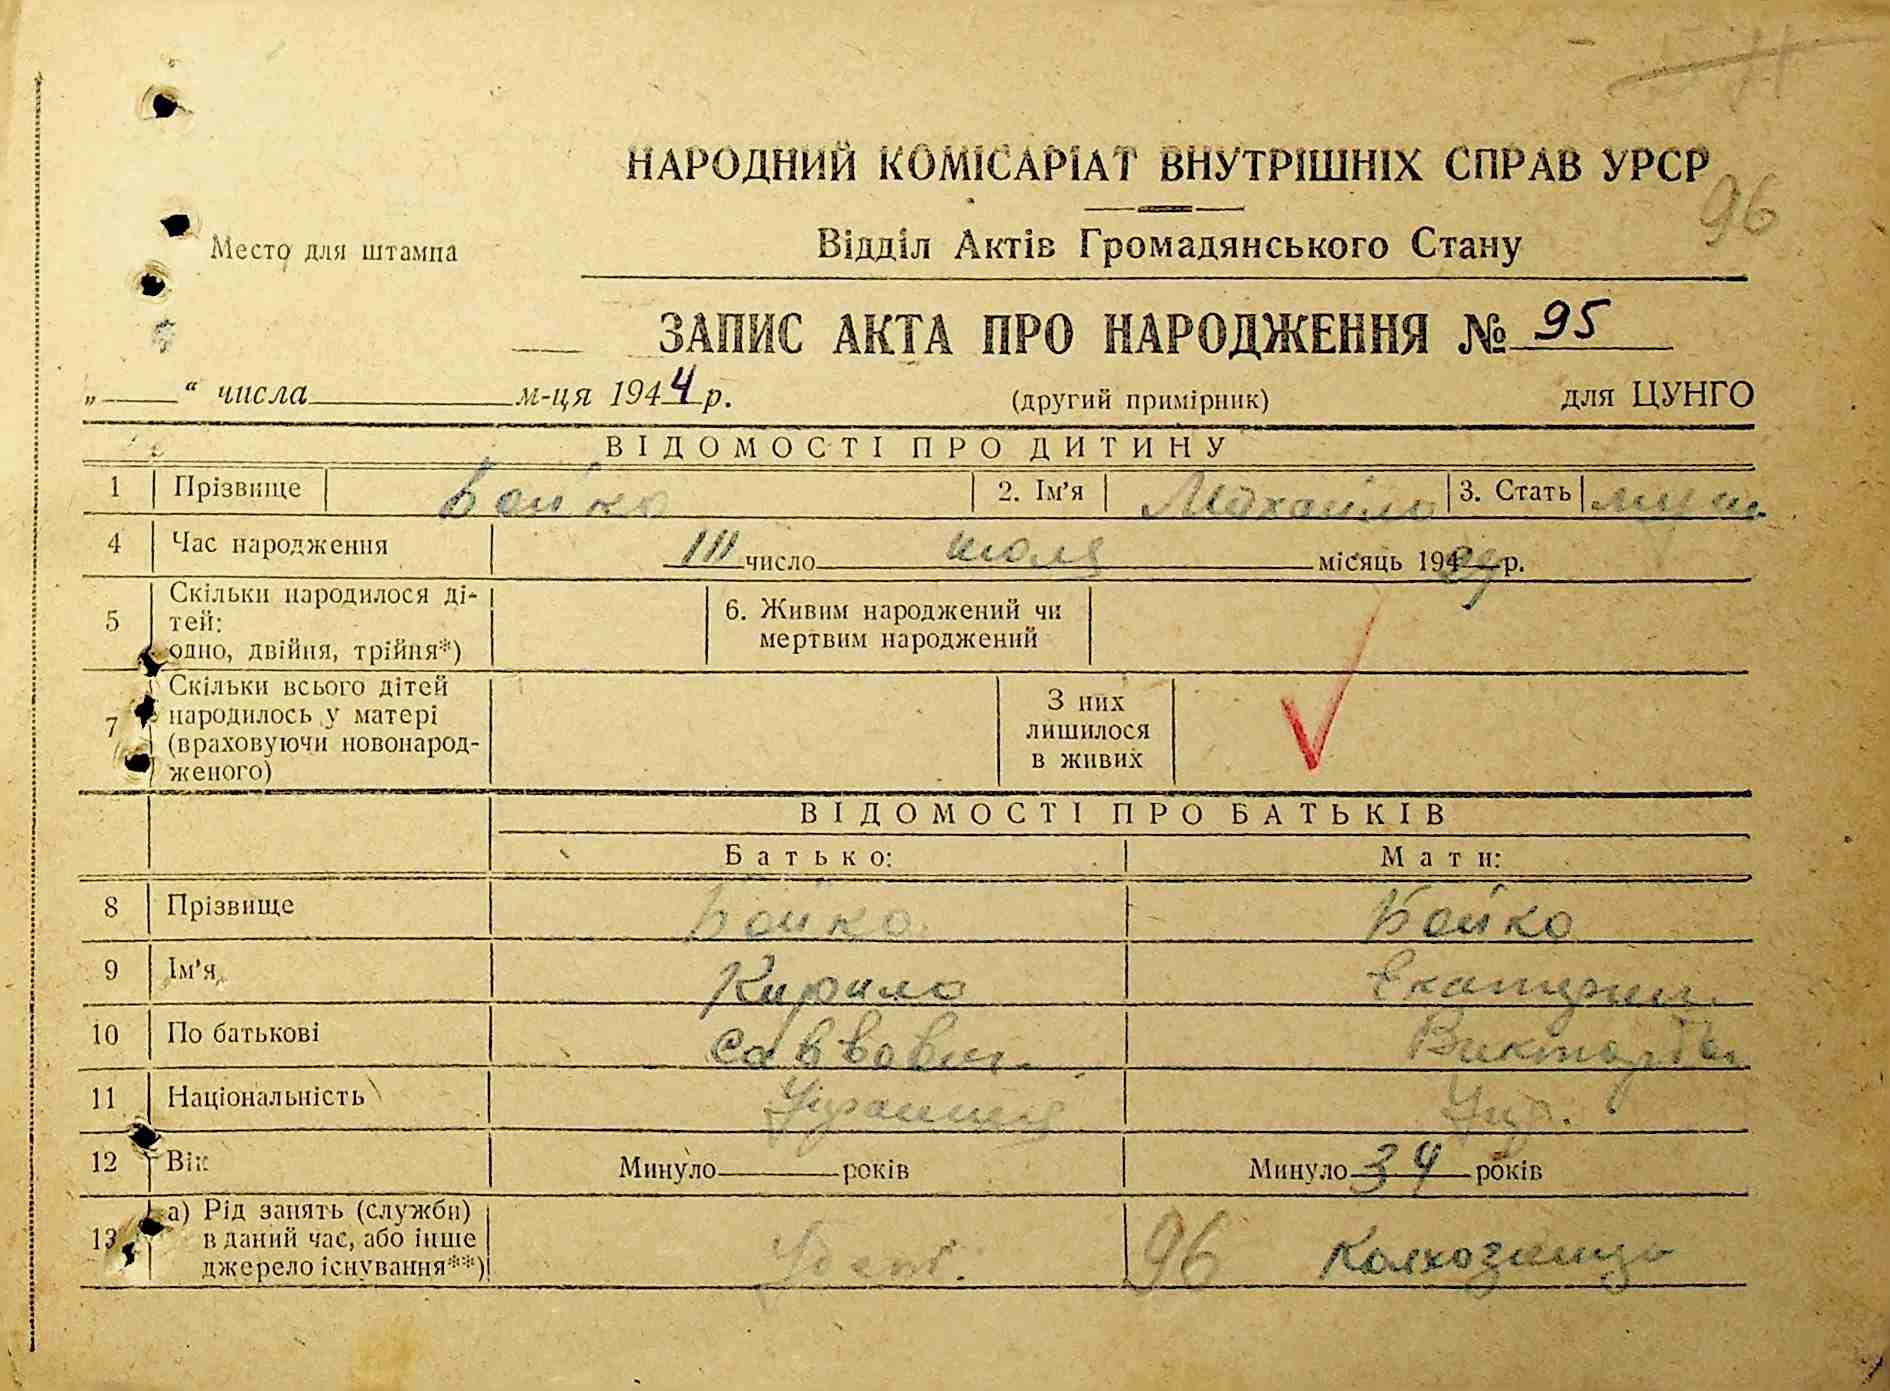 НАРОДНИЙ КОМІСАРІАТ ВНУТРІШНІХ СПРАВ УРСР
96
Место для штампа
Відділ Актів Громадянського Стану
ЗАПИС АКТА ПРО НАРОДЖЕННЯ № 95
„ “ числа м-ця 1944 р. (другий примірник) для ЦУНГО
ВІДОМОСТІ ПРО ДИТИНУ
1 Прізвище Бойко 2. Ім'я Михайло 3. Стать муж.
4 Час народження III число июля місяць 194 р.
5 Скільки народилося ді-
тей:
одно, двійня, трійня*)
6. Живим народжений чи
мертвим народжений
7 Скільки всього дітей
народилось у матері
(враховуючи новонарод-
женого)
З них
лишилося
в живих
ВІДОМОСТІ ПРО БАТЬКІВ
Батько: Мати:
8 Прізвище Бойко Бойко
9 Ім'я Кирило Екатерин
10 По батькові Саввович
11 Національність Украинец Укр.
12 Вік Минуло років Минуло 34 років
13 а) Рід занять (служби)
в даний час, або інше
джерело існування**)
96 Колхозница